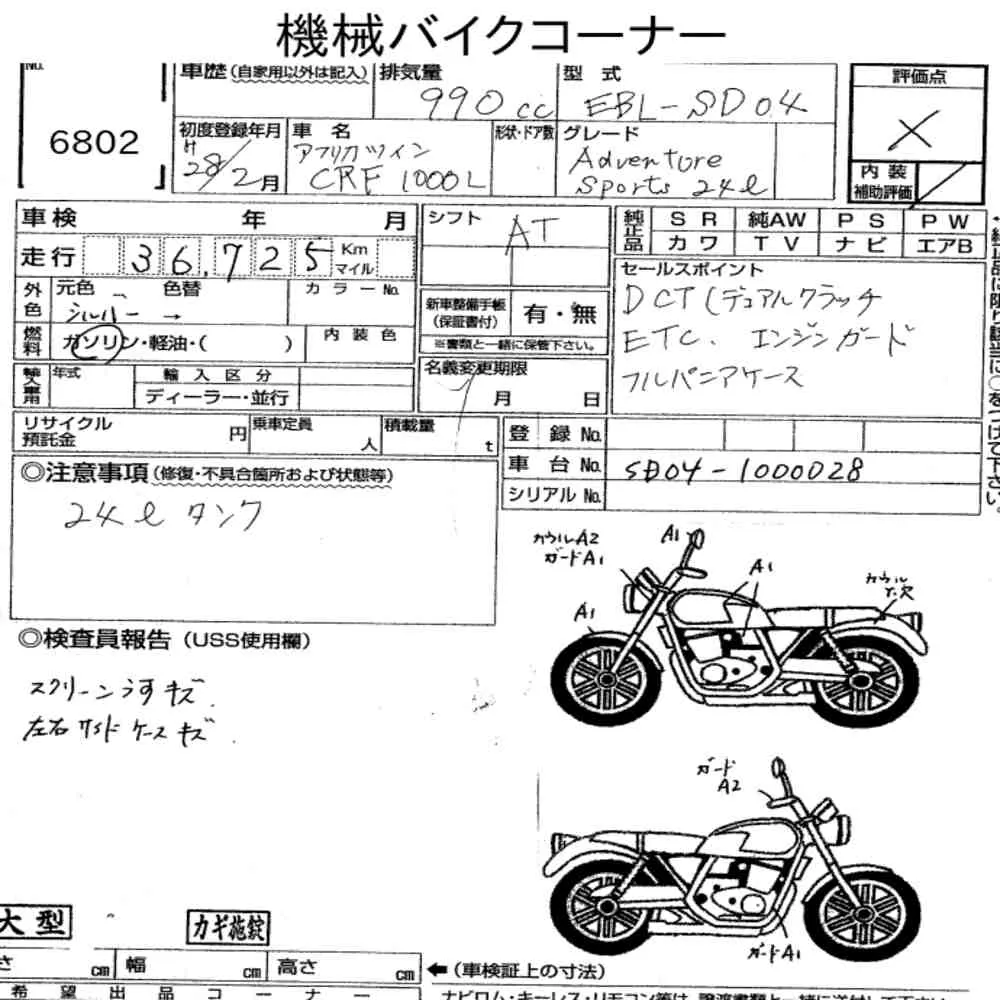 機械バイクコーナー
No.
6802
車歴(自家用以外は記入)
排気量
990cc
型式
EBL-SD04
評価点
×
内装
補助評価
初度登録年月
28/2月
車名
アフリカツイン
CRF 1000L
形状・ドア数
グレード
Adventure
Sports 24ℓ
車検 年 月
走行 36,725 Km マイル
シフト AT
純正品
SR 純AW PS PW
カワ TV ナビ エアB
外色
元色 色替
シルバー →
カラーNo.
セールスポイント
DCT(デュアルクラッチ
ETC、エンジンガード
フルパニアケース
新車整備手帳
(保証書付)
有・無
※書類と一緒に保管下さい。
燃料
ガソリン・軽油・( )
内装色
輸入車用
年式
輸入区分
ディーラー・並行
名義変更期限
月 日
リサイクル
預託金 円
乗車定員 人
積載量 t
登録No.
車台No. SD04-1000028
シリアルNo.
◎注意事項(修復・不具合箇所および状態等)
24ℓ タンク
◎検査員報告(USS使用欄)
スクリーンうすキズ
左右サイドケースキズ
カウルA2
ガードA1
A1
A1
A1
カウル
ガード
A2
ガードA1
大型
カギ施錠
さ cm
幅 cm
高さ cm
←(車検証上の寸法)
希望出品コーナー